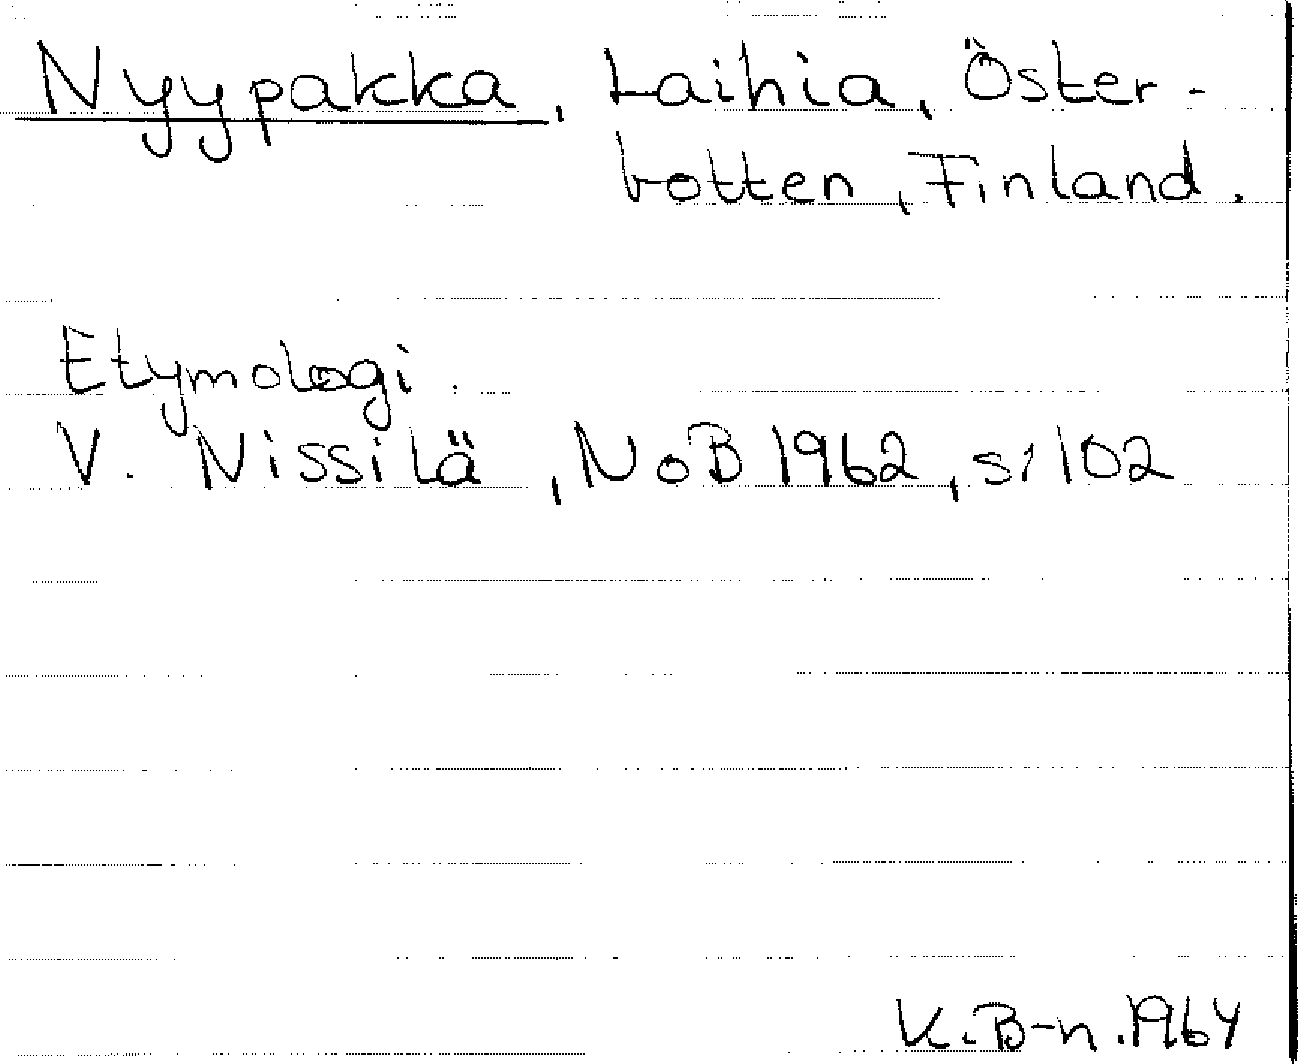 Nyypakka, Laihia, Öster-
botten, Finland.
Etymologi.
V. Nissilä, NoB 1962, s. 102
K.B-n. 1964